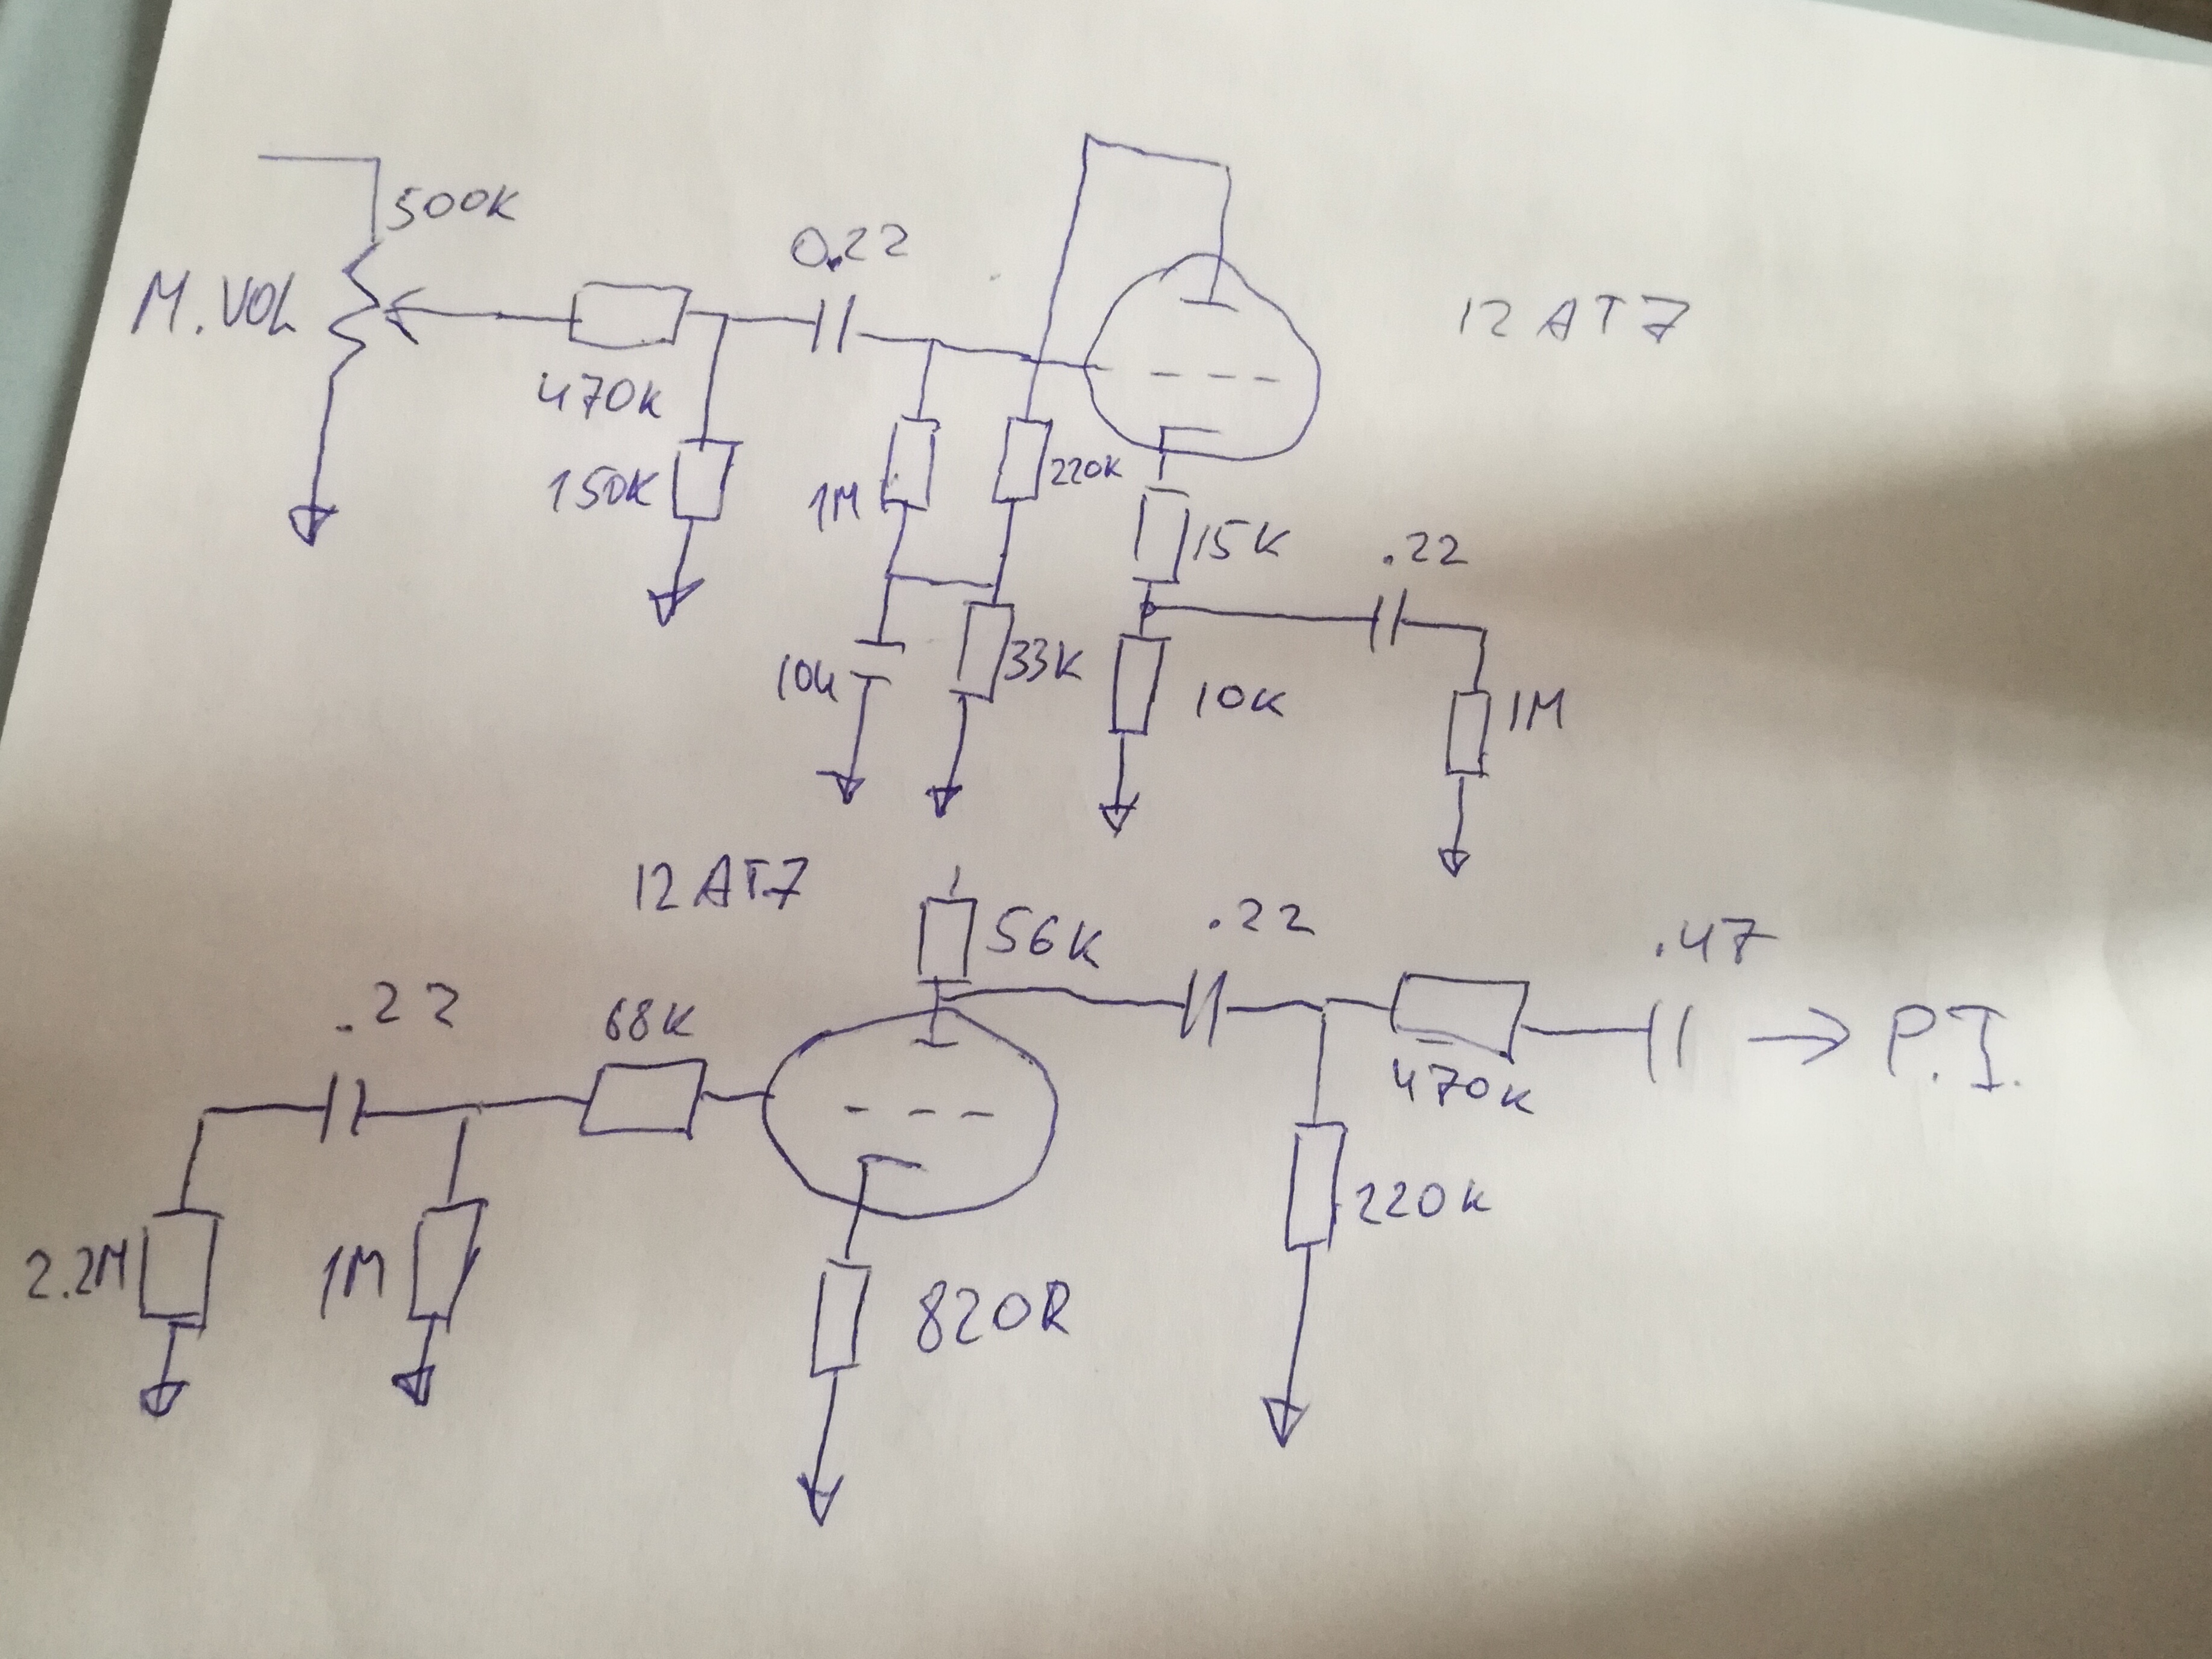 500K
M.VOL
470K
150K
0.22
1M
220K
12AT7
15K
.22
10u
33K
10K
1M
12AT7
56K
.22
.47
.22
68K
470K
→ P.I.
2.2M
1M
820R
220K